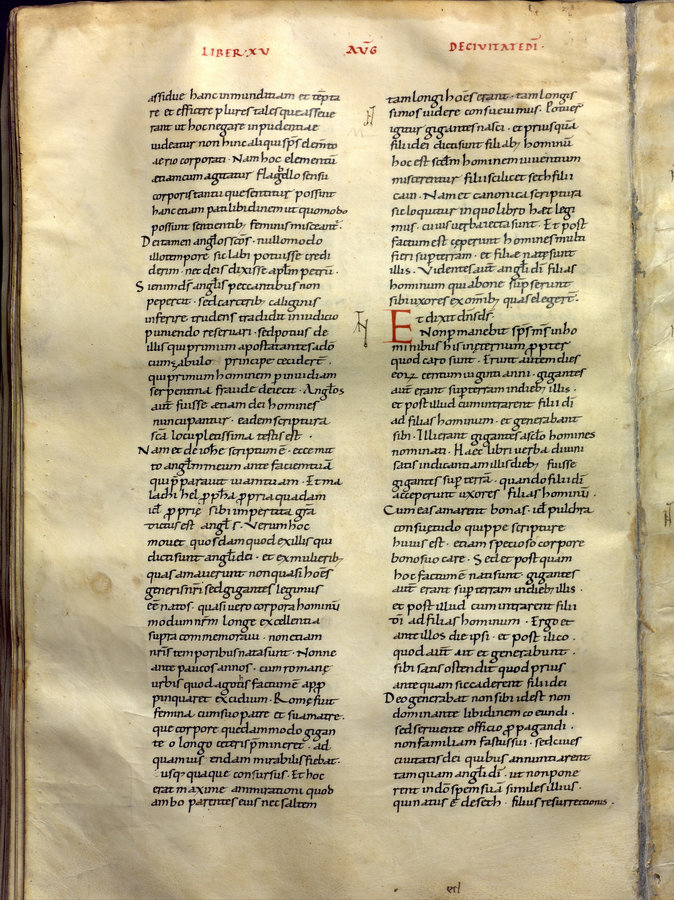 LIBER·XV AUG̅ DECIVITATEDI̅·
assidue hanc inmunditiam et te̅pta
re et efficere plures tales que asseve
rant ut hoc negare inpudentiae
videatur non hinc aliqui sp̅s elem̅to
aerio corporati. Nam hoc elementu̅
etiam cum agitatur flagello sensu
corporis tantu que sentitur possint
hanc etiam pati libidinem ut quomodo
possunt sentientib; feminis misceant̅.
Dei tamen angl̅os sc̅os. nullo modo
illo tempore sic labi potuisse credi
derim. nec de is dixisse apl̅m petru̅.
Si enim ds̅ angl̅is peccantibus non
pepercit. sed carcerib; caliginis
inferi retrudens tradidit in iudicio
puniendo reservari. sed potius de
illis qui primum apostatantes a do̅
cum zabulo principe ceciderer̅.
qui primum hominem p̱ invidiam
serpentina fraude deiecit. Angl̅os
aut̅ fuisse etiam dei homines
nuncupatur. eadem scriptura
sc̅a locupletissima testis est.
Nam et de iohe scriptum e̅. ecce mit
to angl̅m meum ante faciem tua̅
qui p̱paravit viam tuam. Et ma
lachihel p̱pha propria quadam
id̅ p̱prie sibi impertita gra̅
dictus est angl̅s. Verum hoc
movet quosdam quod ex illis qui
dicti sunt angl̅i dei. et ex mulierib;
quas amaverunt non quasi ho̅es
generis nr̅i sed gigantes legimus
ee̅ natos. quasi vero corpora hominu̅
modum nr̅m longe excellentia
supra commemoravi. non etiam
nr̅is temporibus nata sunt. Nonne
ante paucos annos. cum romanę
urbis quod a gotis factum e̅ app̱
pinquaret excidium. Romę fuit
femina cum suo patre et sua matre.
que corpore quedammodo gigan
teo longe ceteris p̱mineret. ad
quam visendam mirabilis fiebat.
usq; quaque consursus. Et hoc
erat maxime ammirationi quod
ambo parentes eius nec saltem
tam longi ho̅es erant. tam longis
simos videre consuevimus. Potuer̅
igitur gigantes nasci. et prius qua̅
filii dei dicti sunt filiab; hominu̅
hoc est sc̅dm hominem viventium
miscerentur filii scilicet seth filii
cain. Nam et canonica scriptura
sic loquitur in quo libro haec legi
mus. cuius verba ista sunt. Et post
factum est ceperunt homines multi
fieri super terram. et filiae natę sunt
illis. Videntes aut̅ angl̅i di̅ filias
hominum quia bone sup̱ serunt
sibi uxores ex omib; quas elegerr̅.
Et dixit dn̅s ds̅.
Non p̱manebit sp̅s ms̅ in ho
minibus his in eternum p̱pter
quod caro sunt. Erunt autem dies
eorum centum viginti anni. gigantes
aut̅ erant sup̱ terram in dieb; illis.
et post illud cum intrarent filii di̅
ad filias hominum. et generabant
sibi. Illi erant gigantes a sc̅lo homines
nominati. Haec libri verba divini
satis indicant iam illis dieb; fuisse
gigantes sup̱ terra̅. quando filii di̅
acceperunt uxores filias hominu̅.
Cum eas amarent bonas. id̅ pulchra
consuetudo quippe scripture
huius est. etiam specioso corpore
bonos vocare. Sed et post quam
hoc factum e̅ nati sunt gigantes
aut̅ erant sup̱ terram in dieb; illis.
et post illud cum intrarent filii
di̅ ad filias hominum. Ergo et
ante illos die ipsi. et post ilico.
quod aut̅ ait et generabunt.
sibi satis ostendit quod prius
ante quam sic caderent filii dei
Deo generabat non sibi id est non
dominante libidinem coeundi.
sed serviente officio p̱pagandi.
non familiam fastus sui. sed cives
civitatis dei quibus annuntiarent
tam quam angl̅i di̅. ut nonpone
rent in do̅ spem sua̅ similes illius.
qui natus e̅ de seth. filius resurrectionis.